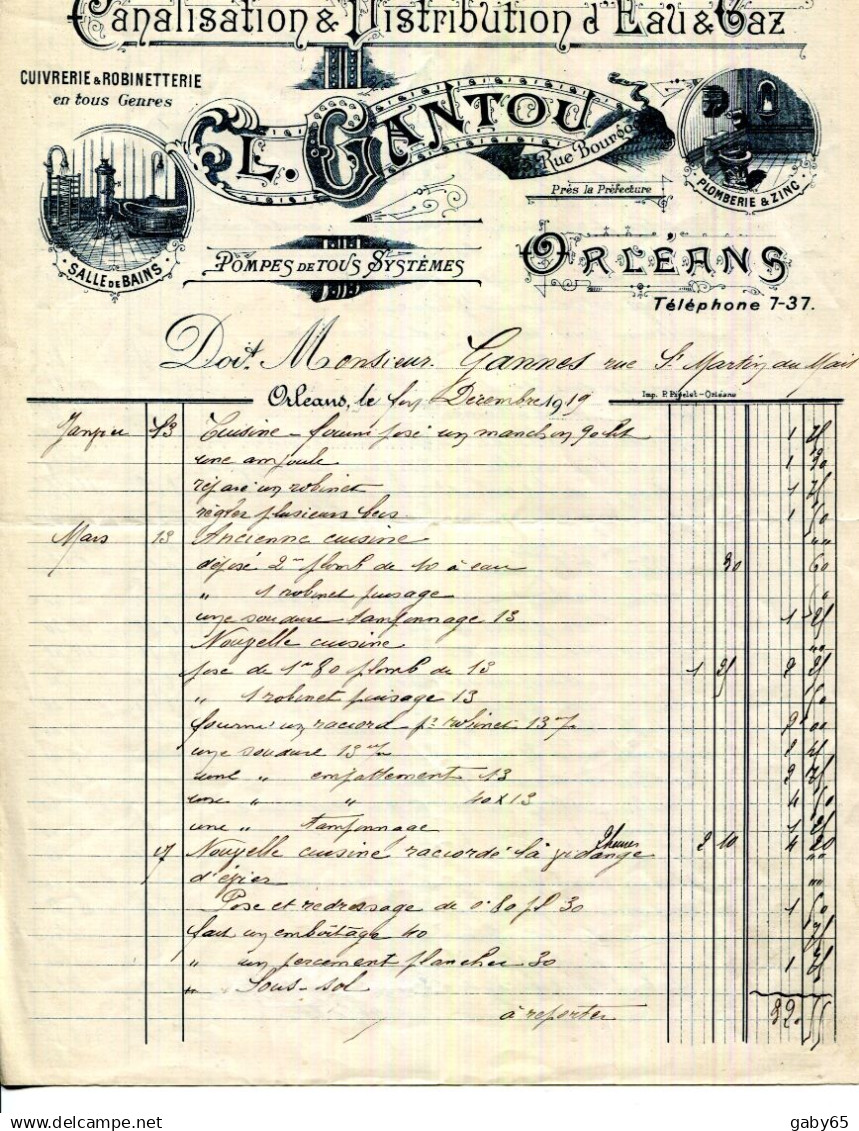 Canalisation & Distribution d'Eau & Gaz
CUIVRERIE & ROBINETTERIE
en tous Genres
L. GANTOU
Rue
Près la Préfecture
PLOMBERIE & ZINC
SALLE DE BAINS
POMPES DE TOUS SYSTÈMES
ORLÉANS
Téléphone 7-37.
Doit Monsieur Gannes rue St Martin du Mail
Orléans, le Décembre 1919
Imp. P. Pigelet-Orléans
Janvier 13 Cuisine - fourni posé un manchon 1
une ampoule 1
réparé un robinet 1
régler plusieurs becs 1
Mars 13 Ancienne cuisine " "
déposé 2m plomb de 10 à eau 30 60
" 1 robinet puisage
une soudure tamponnage 13 1 25
Nouvelle cuisine " "
pose de 1m80 plomb de 13 1 25 2 25
" 1 robinet puisage 13
fourni un raccord pr robinet 13 m/m 2 00
une soudure 13 m/m 2 25
une " empattement 13 2 75
une " " 40 x 13 4 50
une " tamponnage 1 25
17 Nouvelle cuisine raccordé la vidange 2 heures 2 10 4 20
d'évier " "
Pose et redressage de 0.80 pl 30 1 50
fait un emboîtage 40
" un percement plancher 30 1 75
" Sous-sol
à reporter
gaby65